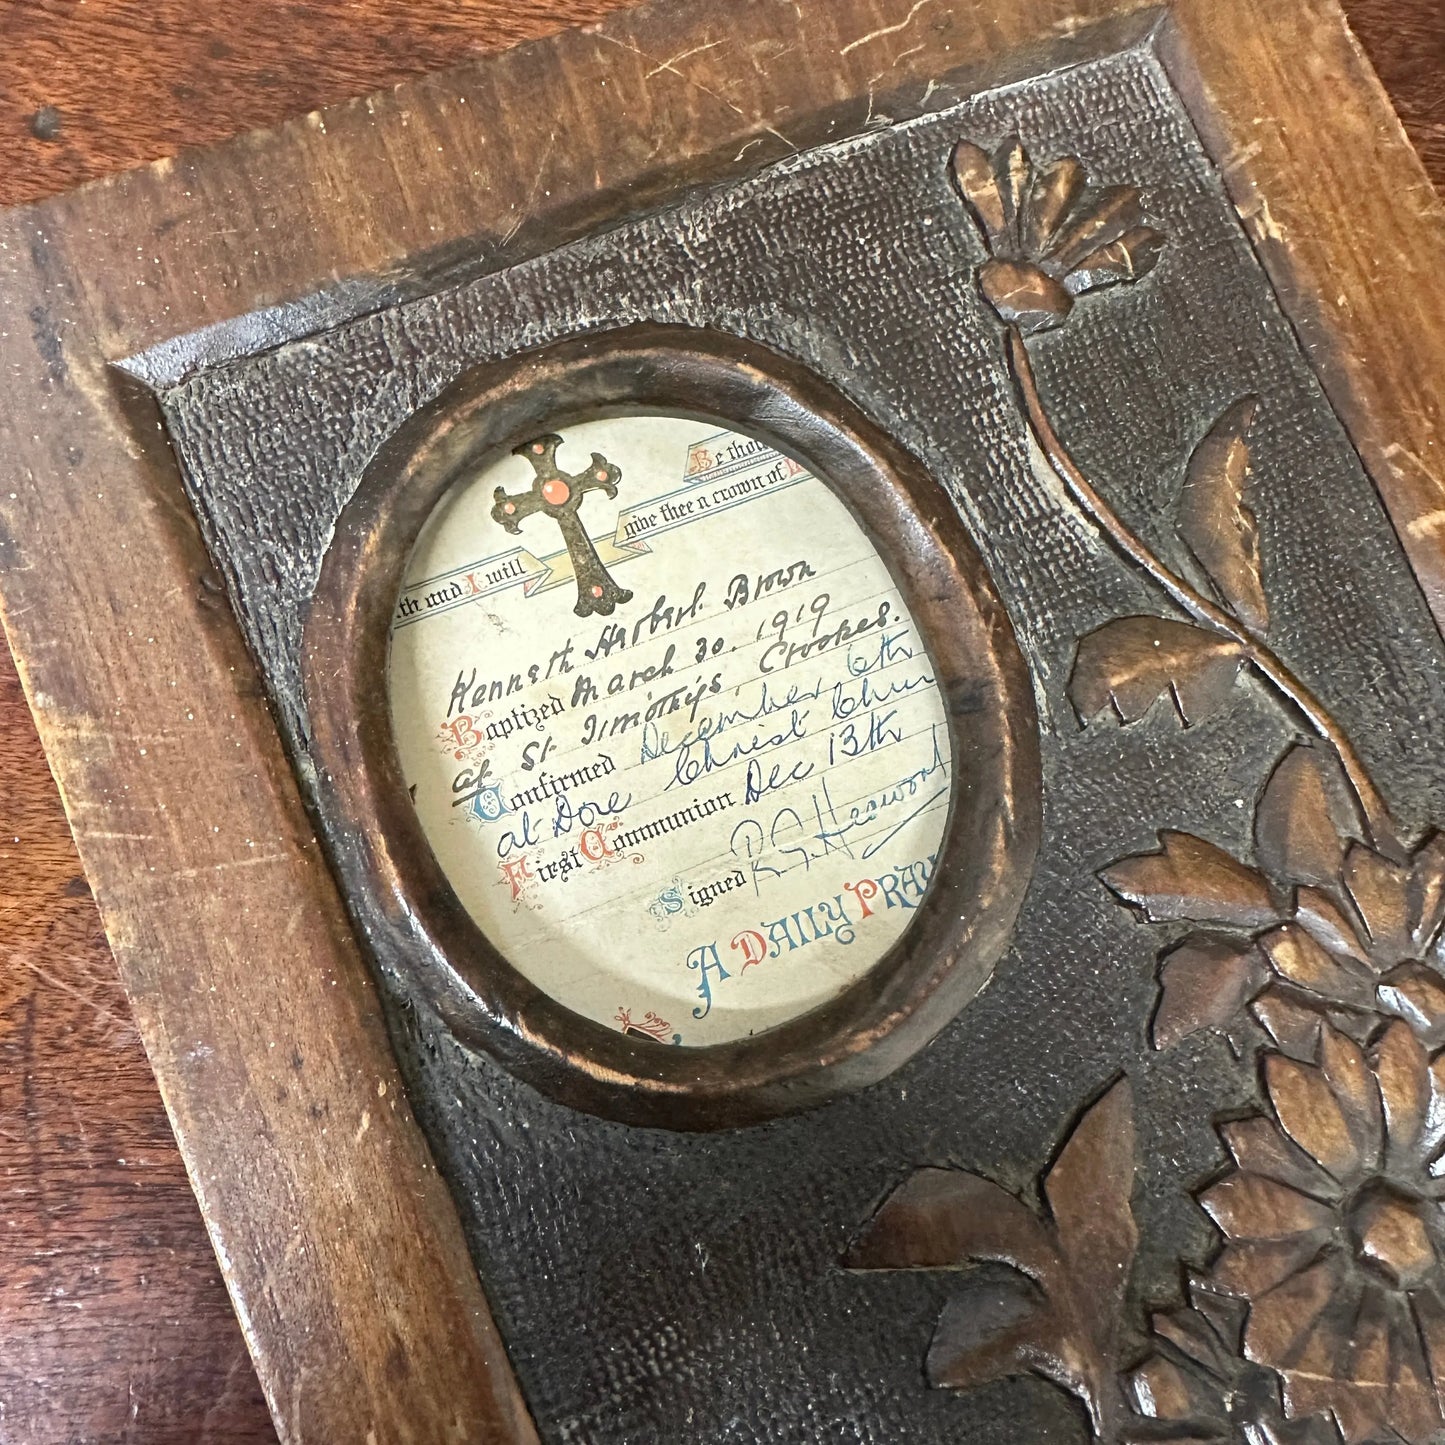 Be thou
th and I will give thee a crown of
Kenneth Herbert Brown
Baptized March 30. 1919
at St Timothys, Crookes.
Confirmed December 6th
at Dore Christ Chur
First Communion Dec 13th
Signed
A DAILY PRAY